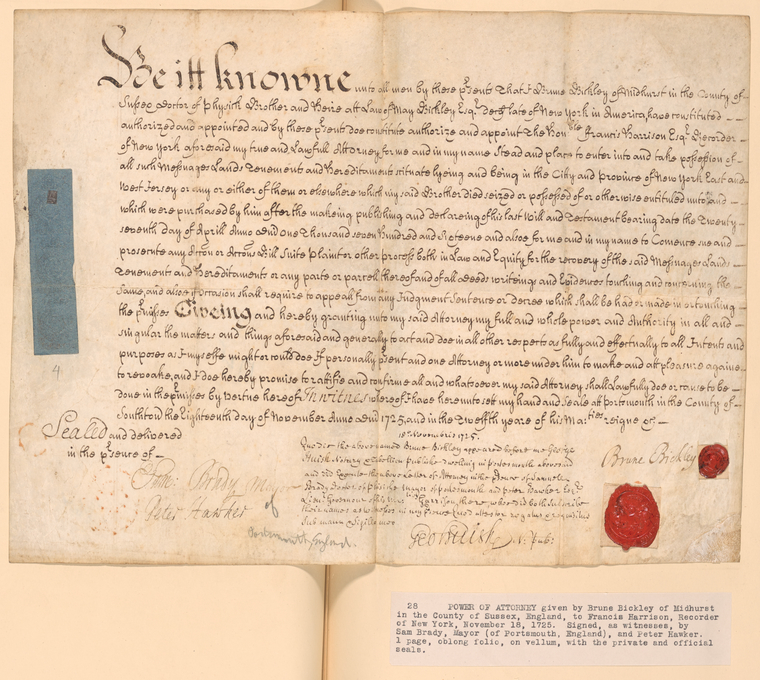 Be itt knowne unto all men by these psents That I Brune Bickley of Midhurst in the County of
Sussex Doctor of Physick Brother and Heire att Law of May Bickley Esqr. decd. late of New York in America, have constituted
authorized and appointed and by these psents doe constitute authorize and appoint the Honble Francis Harrison Esqr. Recorder
of New York aforesaid my true and Lawfull Attorney for me and in my name Stead and place to enter into and take possession of
all such Messuages Lands Tenements and Hereditaments scituate lyeing and being in the City and Province of New York East and
West Jersey or any or either of them or elsewhere which my said Brother died seized or possessed of or otherwise entituled unto and
which were purchased by him after the makeing publishing and declareing of his last Will and Testament bearing date the Twenty
seventh day of Aprill Anno Dni One Thousand seven Hundred and Sixteene and alsoe for me and in my name to Comence sue and
prosecute any Accon or Accons Bill Suite Plaint or other process both in Law and Equity for the recovery of the said Messuages Lands
Tenements and Hereditaments or any parte or parcell thereof and of all deeds writeings and Evidences touching and concerning the
same, and alsoe if occasion shall require to appeall from any Judgment Sentence or Decree which shall be had or made in or touching
the pmisses Giveing and hereby granting unto my said Attorney my full and whole power and Authority in all and
singular the matters and things aforesaid and generally to act and doe in all other respects as fully and effectually to all Intents and
purposes as I my selfe might or could doe If personally psent and one Attorney or more under him to make and att pleasure againe
to revoake, and I doe hereby promise to rattifie and confirme all and whatsoever my said Attorney shall Lawfully doe or cause to be
done in the pmisses by vertue hereof In witness whereof I have hereunto set my hand and Seale att Portsmouth in the County of
Southton the Eighteenth day of November Anno Dni 1725, and in the Twelfth yeare of his Maties reigne &c.
Sealed and delivered
in the psence of
Sam: Brady May
Peter Hawker
Portsmouth, England.
18th Novembris 1725.
the above named Brune Bickley appeared before me George
Huish Notary & Tabellion publick dwelling in portsmouth abovesaid
and did Execute the above Letter of Attorney in the psence of Samuel
Brady Doctor of physick Mayor of portsmouth and peter Hawker Esqr
Governour of his Garrison there, who did both Subscribe
their names as witnesses in my psence
Geo Huish N: Pub:
Brune Bickley
4.
28 POWER OF ATTORNEY given by Brune Bickley of Midhurst
in the County of Sussex, England, to Francis Harrison, Recorder
of New York, November 18, 1725. Signed, as witnesses, by
Sam Brady, Mayor (of Portsmouth, England), and Peter Hawker.
1 page, oblong folio, on vellum, with the private and official
seals.